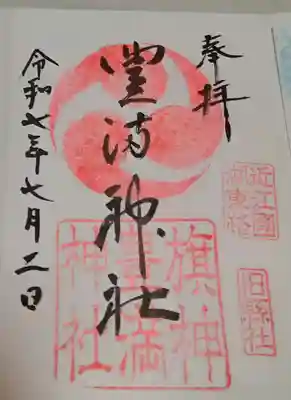 奉拝
近江國
湖東招
旧縣社
豊満神社
旗神
豊満
神社
令和七年七月二日